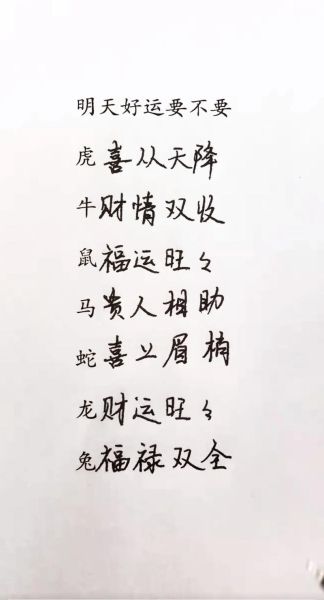 明天好运要不要
虎喜从天降
牛财情双收
鼠福运旺々
马贵人相助
蛇喜上眉梢
龙财运旺々
兔福禄双全